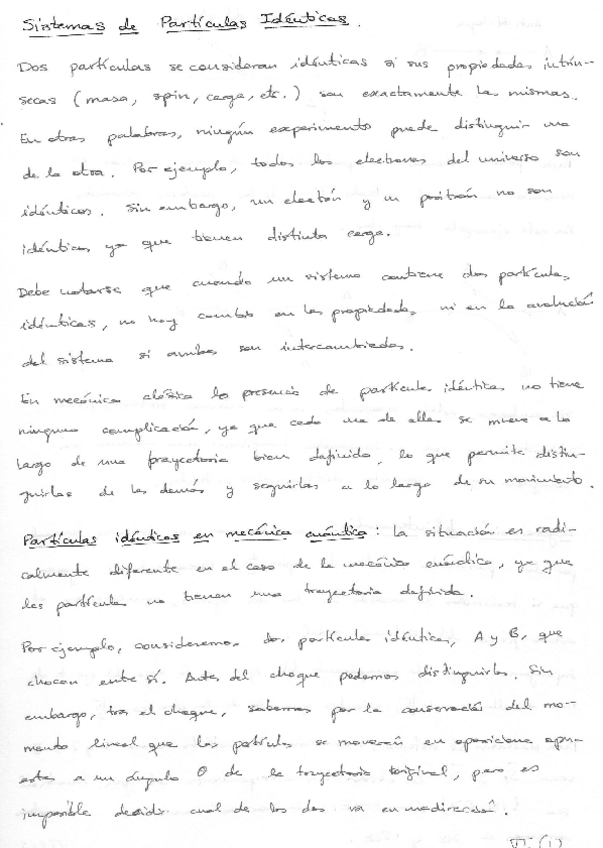 Sistemas de Partículas Idénticas.
Dos partículas se consideran idénticas si sus propiedades intrín-
secas (masa, spin, carga, etc.) son exactamente las mismas.
En otras palabras, ningún experimento puede distinguir una
de la otra. Por ejemplo, todos los electrones del universo son
idénticos. Sin embargo, un electrón y un positrón no son
idénticos ya que tienen distinta carga.
Debe notarse que cuando un sistema contiene dos partículas
idénticas, no hay cambio en las propiedades ni en la evolución
del sistema si ambas son intercambiadas.
En mecánica clásica la presencia de partículas idénticas no tiene
ninguna complicación, ya que cada una de ellas se mueve a lo
largo de una trayectoria bien definida, lo que permite distin-
guirlas de las demás y seguirlas a lo largo de su movimiento.
Partículas idénticas en mecánica cuántica: la situación es radi-
calmente diferente en el caso de la mecánica cuántica, ya que
las partículas no tienen una trayectoria definida.
Por ejemplo, consideremos dos partículas idénticas, A y B, que
chocan entre sí. Antes del choque podemos distinguirlas. Sin
embargo, tras el choque, sabemos por la conservación del mo-
mento lineal que las partículas se moverán en
a un ángulo θ de la trayectoria original, pero es
imposible decidir cual de las dos va en
(1)